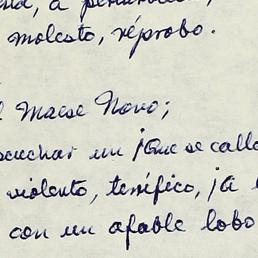 molesto, réprobo.
Maese Novo;
un ¡Que se calle
violento, terífico, ¡a
con un afable lobo